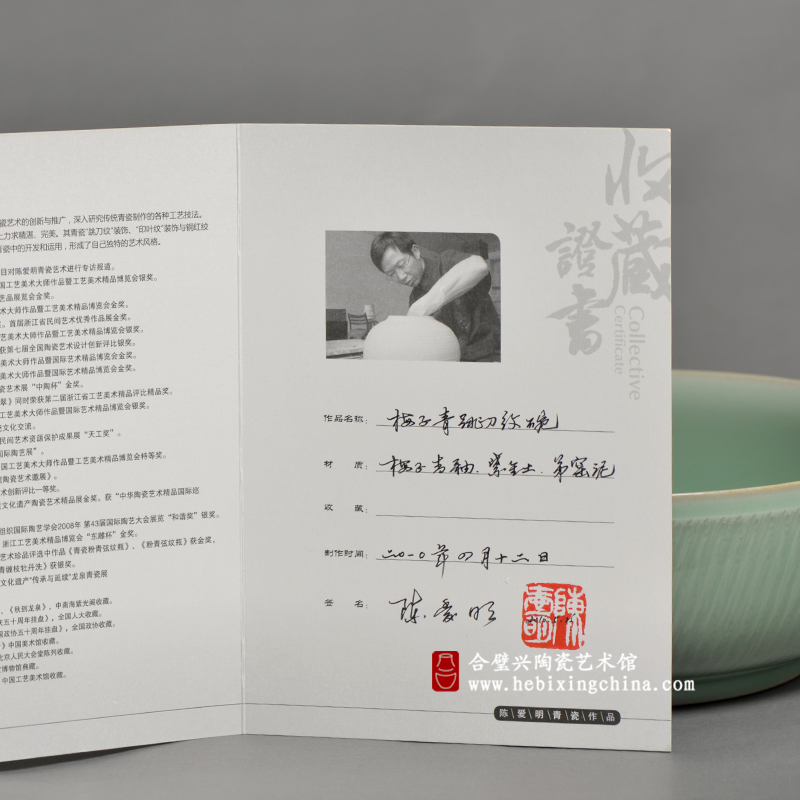 瓷艺术的创新与推广，深入研究传统青瓷制作的各种工艺技法。
上力求精湛、完美。其青瓷“跳刀纹”装饰、“印叶纹”装饰与铜红绞
青瓷中的开发和运用，形成了自己独特的艺术风格。
目对陈爱明青瓷艺术进行专访报道。
国工艺美术大师作品暨工艺美术精品博览会银奖。
艺品展览会金奖。
术大师作品暨工艺美术精品博览会金奖。
，首届浙江省民间艺术优秀作品展金奖。
艺美术大师作品暨工艺美术精品博览会银奖。
获第七届全国陶瓷艺术设计创新评比银奖。
美术大师作品暨国际艺术精品博览会金奖。
美术大师作品暨国际艺术精品博览会金奖。
瓷艺术展“中陶杯”金奖。
翠》同时荣获第二届浙江省工艺美术精品评比精品奖。
工艺美术大师作品暨国际艺术精品博览会银奖。
瓷文化交流。
民间艺术资源保护成果展“天工奖”。
国际陶艺展”。
国工艺美术大师作品暨工艺美术精品博览会特等奖。
陶瓷艺术邀展》。
术创新评比一等奖。
质文化遗产陶瓷艺术精品展金奖，获“中华陶瓷艺术精品国际巡
组织国际陶艺学会2008年 第43届国际陶艺大会展览“和谐奖”银奖。
浙江工艺美术精品博览会“东雕杯”金奖。
艺术珍品评选中作品《青瓷粉青弦纹瓶》、《粉青弦纹瓶》获金奖，
青缠枝牡丹洗》获银奖。
文化遗产“传承与延续”龙泉青瓷展
、《秋到龙泉》，中南海紫光阁收藏。
庆五十周年挂盘》，全国人大收藏。
国政协五十周年挂盘》，全国政协收藏。
》中国美术馆收藏。
北京人民大会堂陈列收藏。
博物馆典藏。
中国工艺美术馆收藏。
收藏
證書
Collective
Certificate
作品名称： 梅子青跳刀纹碗
材 质： 梅子青釉、紫金土、弟窑泥
收 藏：
制作时间： 二〇一〇年四月十二日
签 名： 陈爱明
陈爱明
合璧兴陶瓷艺术馆
www.hebixingchina.com
陈\爱\明\青\瓷\作\品